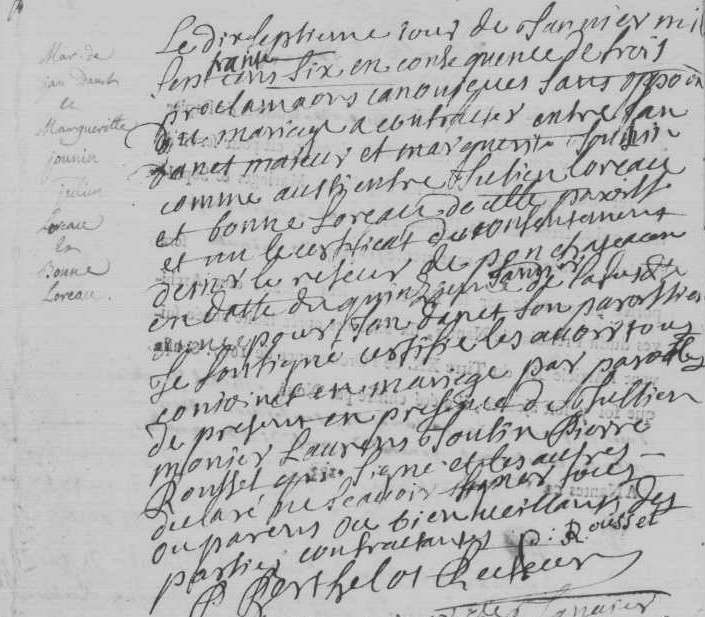 Mar. de
jan Danet
et
Margueritte
jounin
jullien
Loreau
Bonne
Loreau.
Le dixseptieme iour de Ianuier mil
sept cens trante six en consequence de trois
proclamaons canoniques sans oppoon
au mariage a contracter entre Ian
Danet majeur et marguerite Iounin
comme aussi entre Iulien Loreau
et bonne Loreau de cette paroisse
et vu le certificat du consentement
de mr le recteur de ponchateau
en datte du quinzieme Ianuier de la susdte
année pour Ian Danet son paroissien
Ie soutigné certifie les auoir tous
conjoinct en mariage par parolles
de present en presence de Iullien
monier Laurens Soulin Pierre
Rousset qui signe et les autres
declaré ne scauoir signer tous
ou parens ou bienveillants des
parties contractantes P: Rousset
P Berthelot Recteur